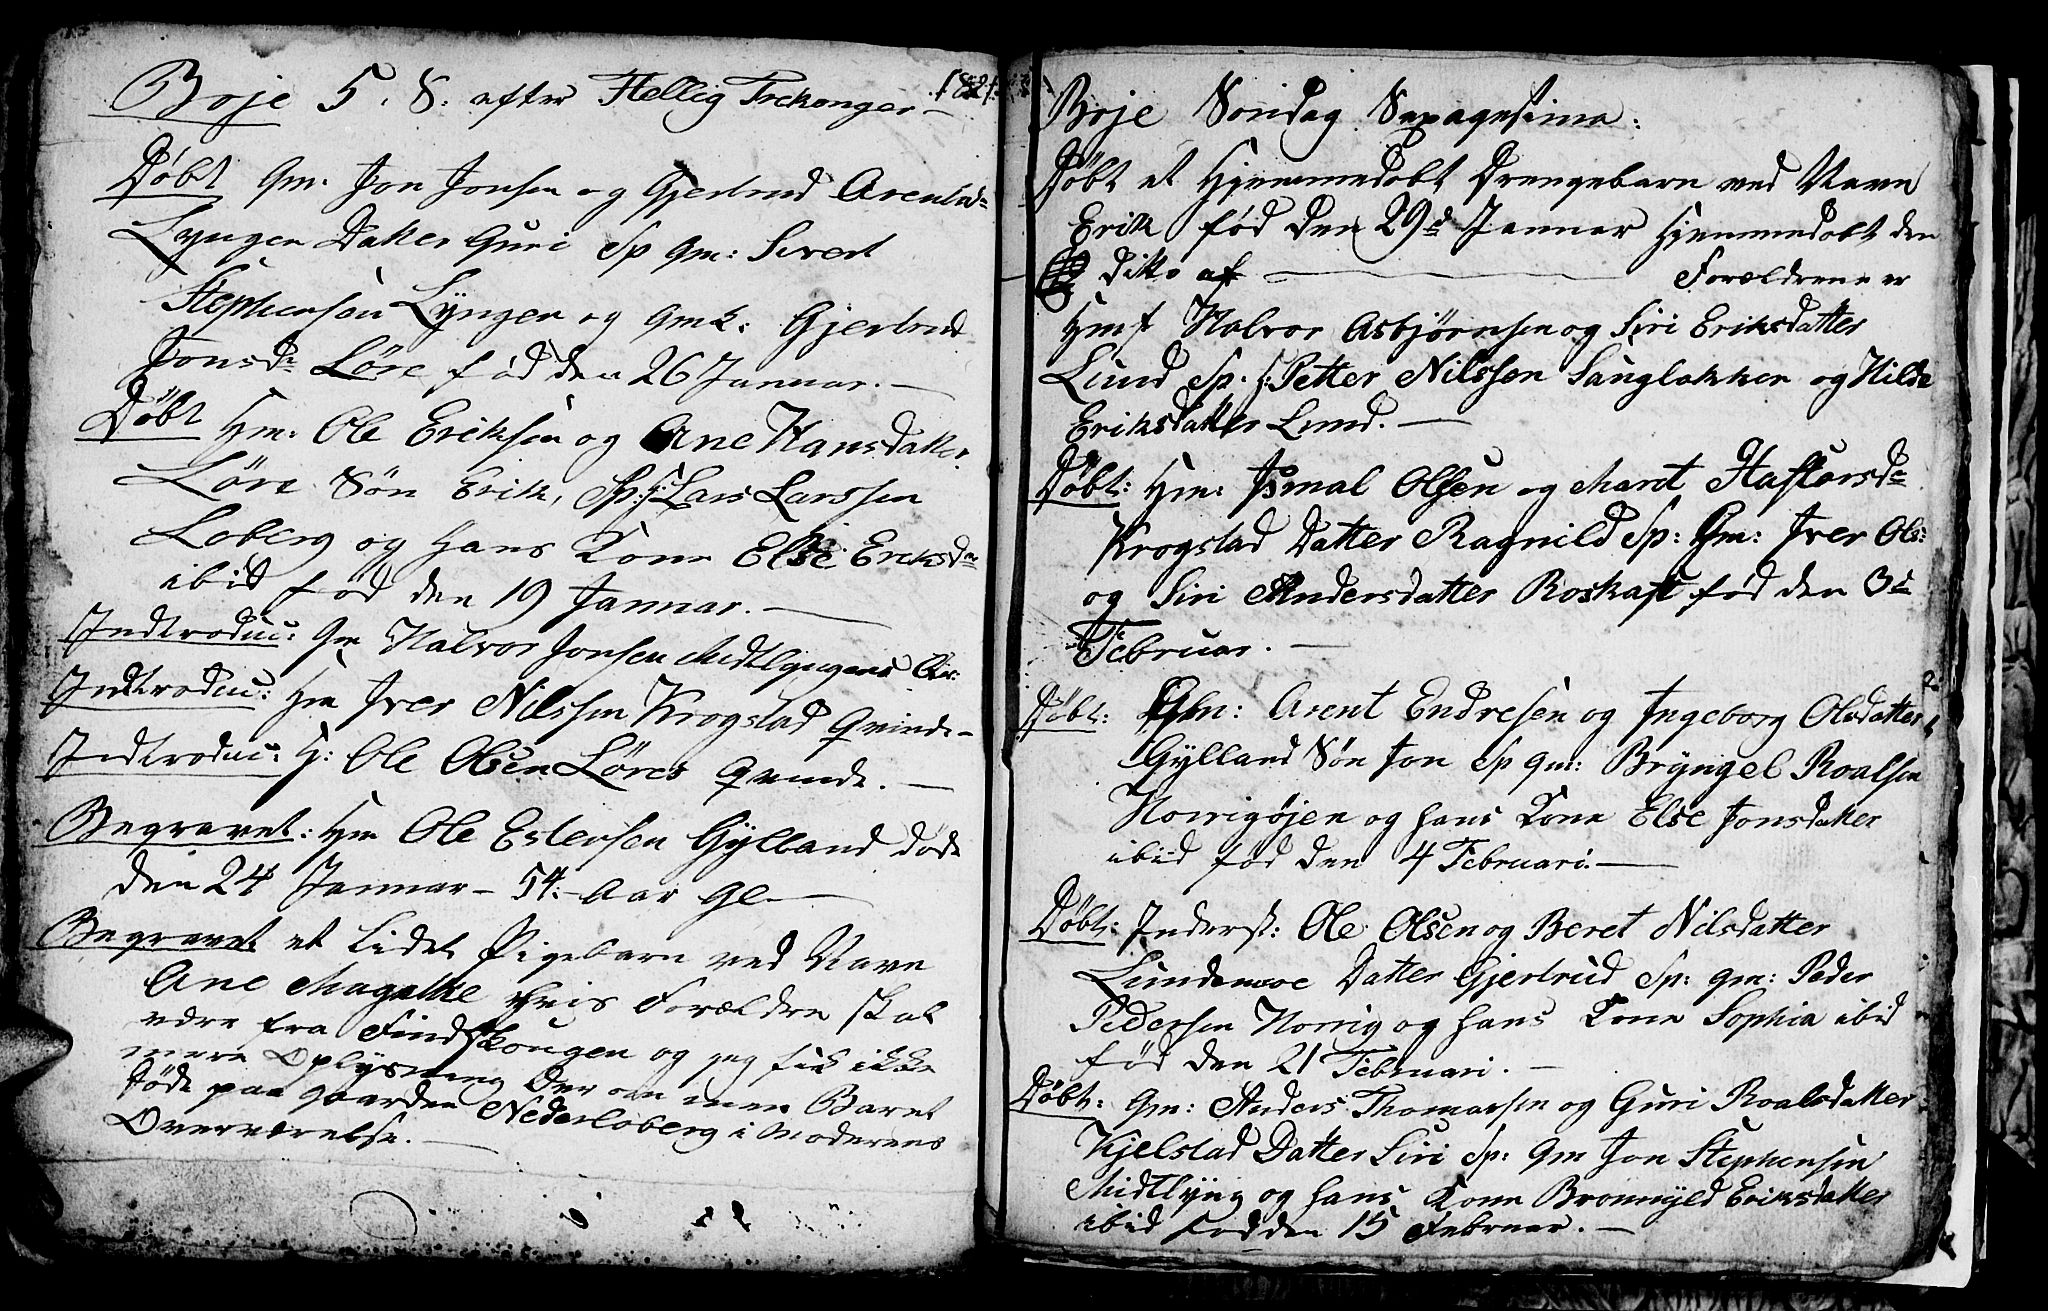 Boje 5. S. efter Hellig Trekonger
1821
Døbt Gm. Jon Jonsen og Gjertrud Arentsd=
Lyngen Datter Guri Sp Gm: Sivert
Stephensen Lyngen og Gmk. Gjertrud
Jonsdr Löre fød den 26 Januar. —
Døbt Hm: Ole Eriksen og Ane Hansdatter
Löre Søn Erik, Sp: H: Lars Larssen
Loberg og Hans Kone Else Eriksdr
ibid fød den 19 Januar. —
Indtroduc: Gm Halvor Jonsen Midtlyngens
Indtroduc: Hm Iver Nilssen Krogstad Qvinde —
Indtroduc: H: Ole Olsen Löres Qvinde. —
Begravet: Hm Ole Estensen Gylland døde
den 24 Januar — 54 — Aar Gl —
Begravet et Lidet Pigebarn ved Navn
Ane Magatte Hvis Forældre skal
være fra Findskougen og jeg fik ikke
mere Oplysning Der om men Barnet
døde paa Gaarden Nederloberg i Moderens
Overværelse. —
Boje Søndag Sexagesima:
Døbt et Hjemmedøbt Drengebarn ved Navn
Erik fød den 29d Januar Hjemmedøbt den
ditto af — Forældrene er
Hmf Halvor Asbjørnsen og Siri Eriksdatter
Lund Sp. H: Petter Nilssen Sauglokker og Hilde
Eriksdatter Lund. —
Døbt: Hm: Ismal Olsen og Marit Haftorsdr
Krogstad Datter Ragnild Sp: Gm: Iver Ols:
og Siri Andersdatter Roskaft fød den 3d
Februar. —
Døbt: Gm: Arent Endresen og Ingeborg Olsdatter
Gylland Søn Jon Sp Gm: Bryngel Roalsen
Horrigøjen og Hans Kone Else Jonsdatter
ibid fød den 4 Februari. —
Døbt: Inderst: Ole Olsen og Beret Nilsdatter
Lundemoe Datter Gjertrud Sp: Gm: Peder
Pedersen Horrig og Hans Kone Sophia ibid
fød den 21 Februari. —
Døbt: Gm: Anders Thomassen og Guri Roalsdatter
Kjelstad Datter Siri Sp: Gm Jon Stephensen
Midtlyng og Hans Kone Bronnyld Eriksdatter
ibid Fød den 15 Februar. —